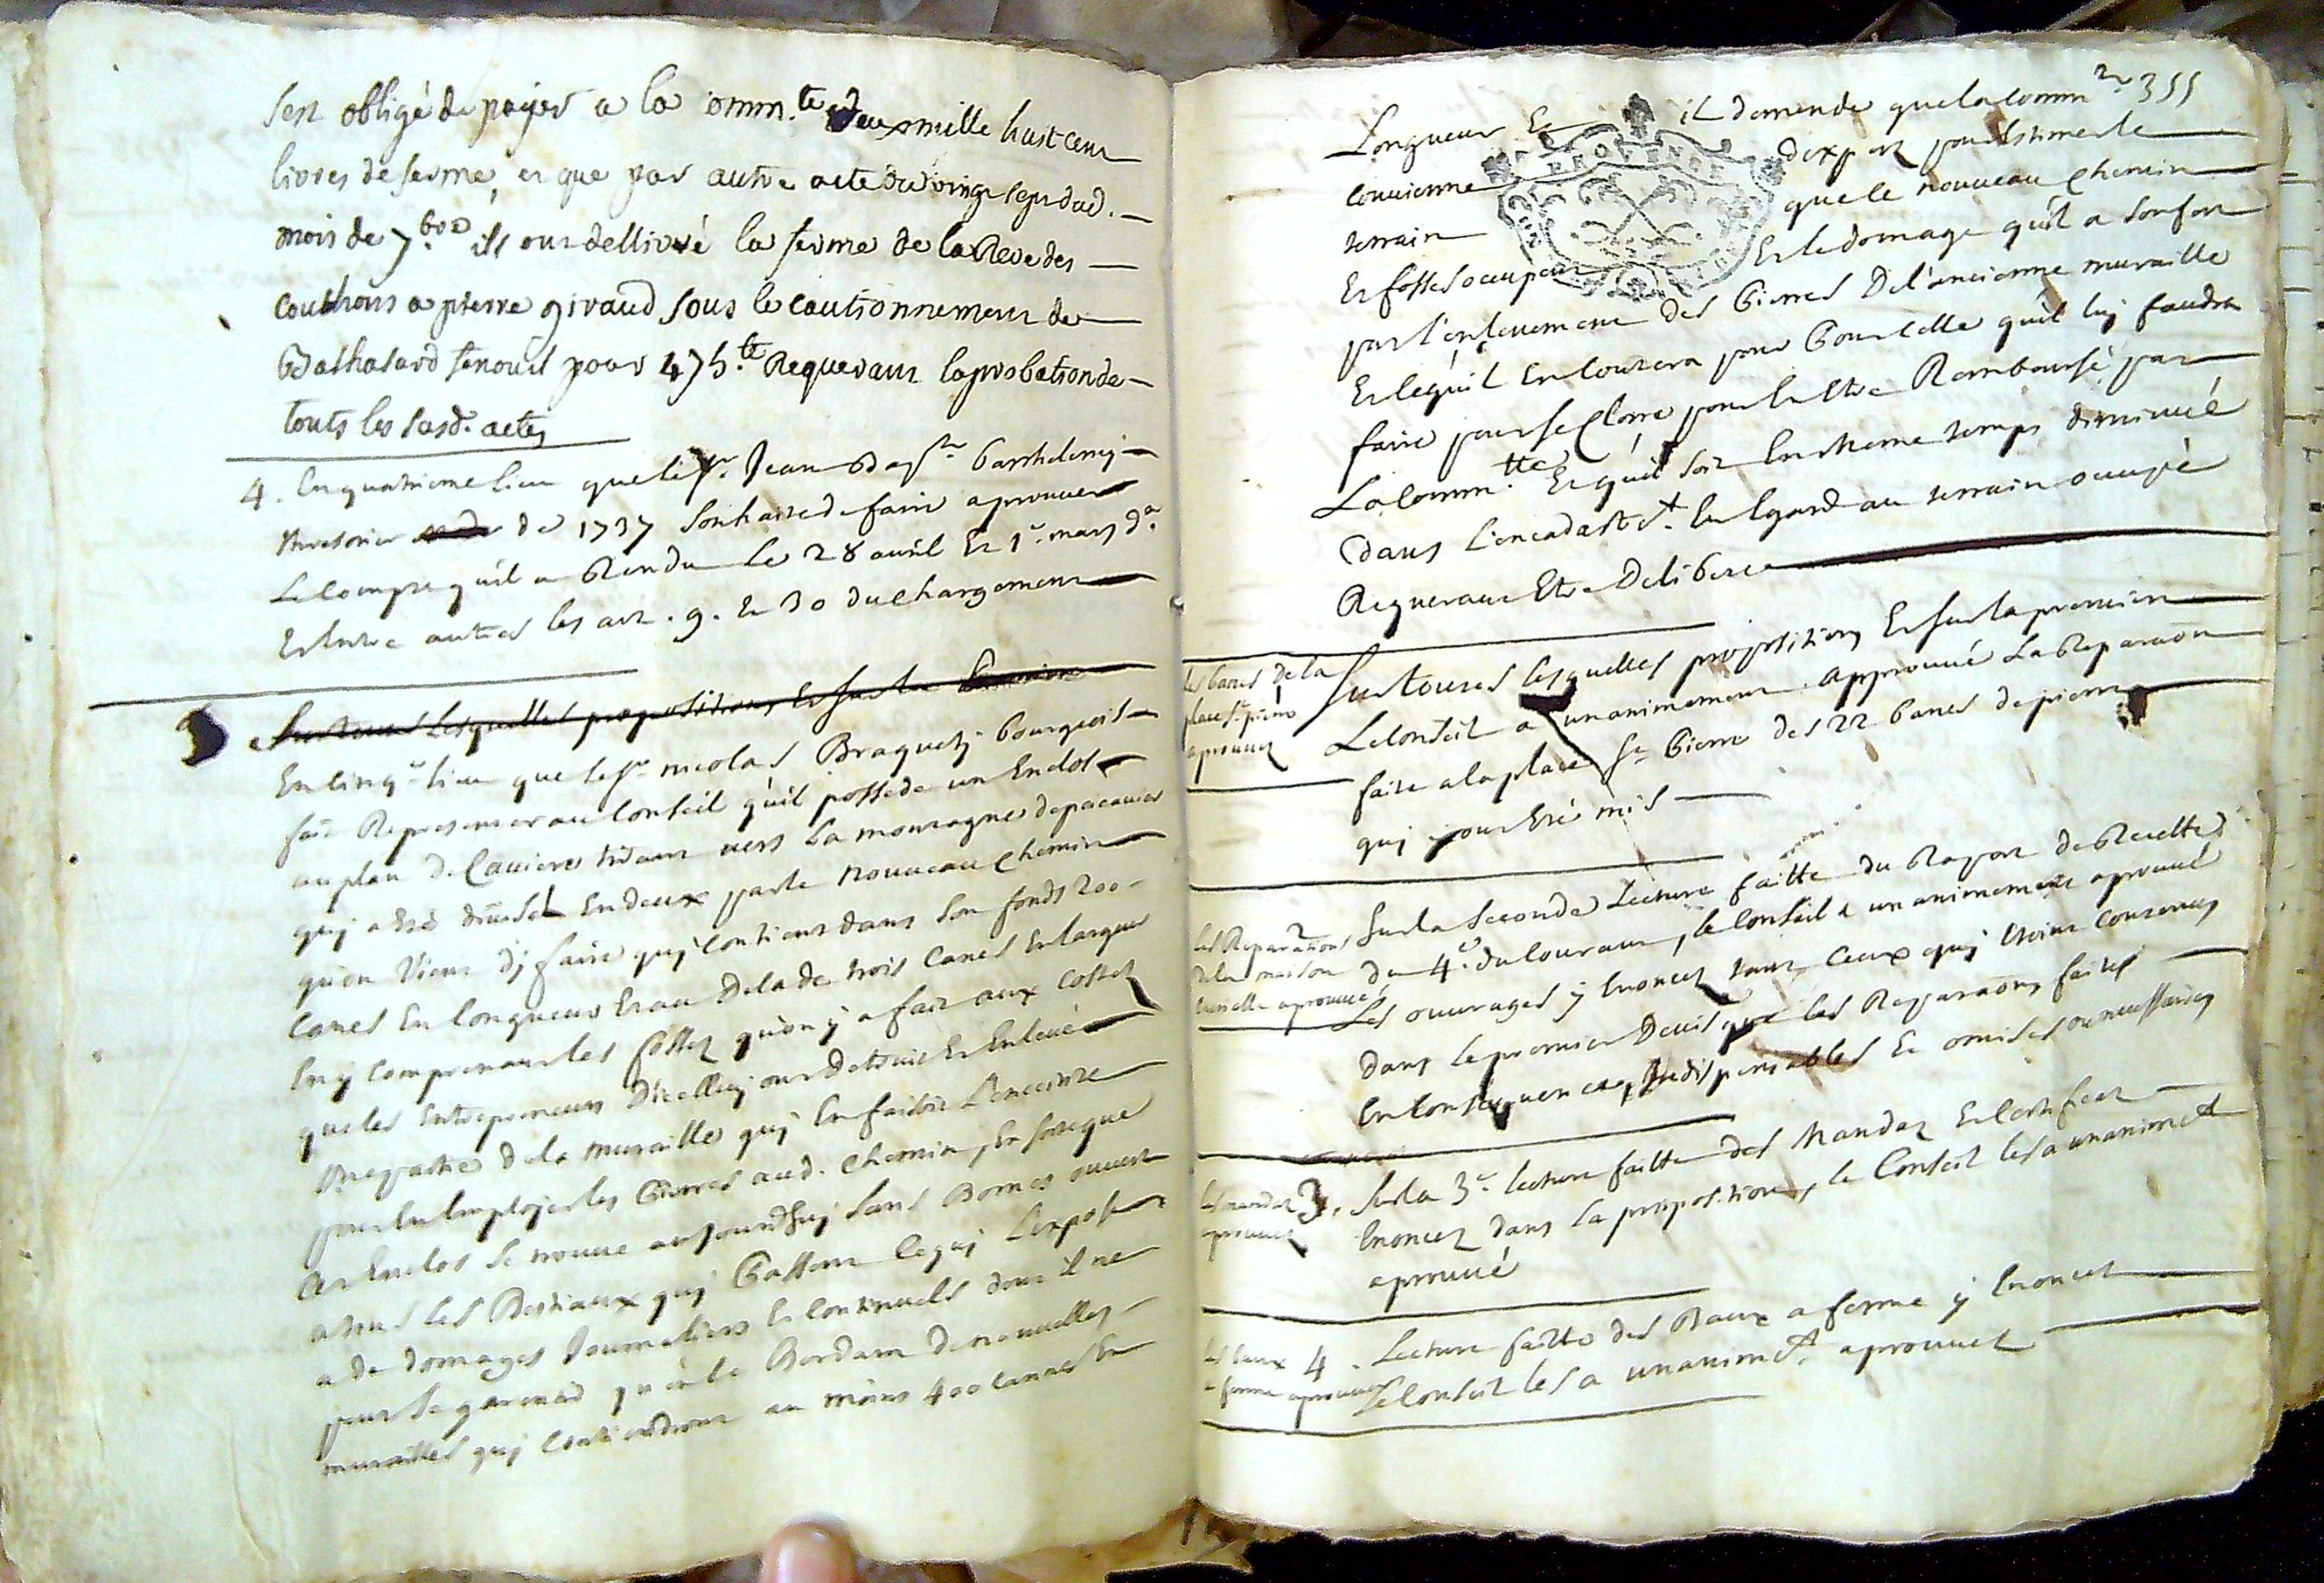 sest obligé de payer a la comm.te deux mille huit cent
livres de ferme, et que par autre acte du vingt sept dud.
mois de 7.bre ils ont dellivré la ferme de la Reve des
couchons a pierre giraud sous le cautionnement de
Balthasard fenouil pour 475.lt Requerant laprobation de
touts les susd. actes
4. En quatrieme lieu que le sr. Jean Bap.te barthelemy
tresorier de 1737 souhaite de faire aprouver
Le compte quil a Rendu le 28 avril Et 1.r mars d.r
Et entre autres les art. 9. Et 30 du chargement
Sur toutes Lesquelles propositions Et sur la premiere
5 En cinq.e lieu que le sr. nicolas Braquety bourgeois
fait Representer au Conseil qu'il possede un Enclos
au plan de Caviere tirant vers La montagne de
quy a Esté divisé En deux par le nouveau chemin
qu'on vient dy faire quy Contient dans son fonds 200
Canes En longueur Et au dela de trois Canes En largeur
En y Comprenant les fossez qu'on y a fait aux Costez
que les Entrepreneurs dicelluy ont detruit Et Enlevé
Une partie de la muraille quy En faisoit L'enceinte
pour En Employer les Pierres aud. Chemin, En sorte que
Cet Enclos se trouve aujourdhuy sans Bornes ouvert
a tous les Bestiaux quy Passent Ce quy L'expose
a de domages Journaliers Et Continuels dont il ne
peut se garantir qu'en le Bordant de nouvelles
murailles quy Contiendront au moins 400 Cannes En
355
Longueur Et il demande que la Comm.te
convienne d'expert pour Estimer le
terrain que le nouveau chemin
Et fosses occupent Et le domage qu'il a souffert
par l'enlevement des Pierres De l'ancienne muraille
Et ce qu'il En Coutera pour Pour celle qu'il luy faudra
faire pour se Clorre pour En Etre Remboursé par
La Comm.tte Et qu'il soit En meme temps diminué
Dans L'encadast.t En Egard au terrain occupé
Requerant Etre Deliberé
les bancs de la
place st. pierre
aprouvez
Sur toutes lesquelles propositions Et sur la premiere
Le Conseil a unanimement approuvé La Reparaon
faite a la place St Pierre des 22 bancs de pierre
quy y ont Esté mis
les Reparations
de la maison
curialle aprouvé
2 Sur la seconde Lecture faitte du Raport de Recette
du 4.e du Courant, le Conseil a unanimement aprouvé
Les ouvrages y Enoncez tant Ceux quy Etoint Contenus
dans le premier Devis que les Reparaons faites
En Consequence, Indispensables Et omises ou necessaires
les mandaz
aprouvez
3. Sur la 3.e lecture faitte des Mandaz Et Certificat
Enoncez dans la proposition, le Conseil les a unanimet
aprouvé
les baux
a ferme aprouvez
4. Lecture faitte des Baux a ferme y Enoncez
Le Conseil les a unanimet. aprouvez